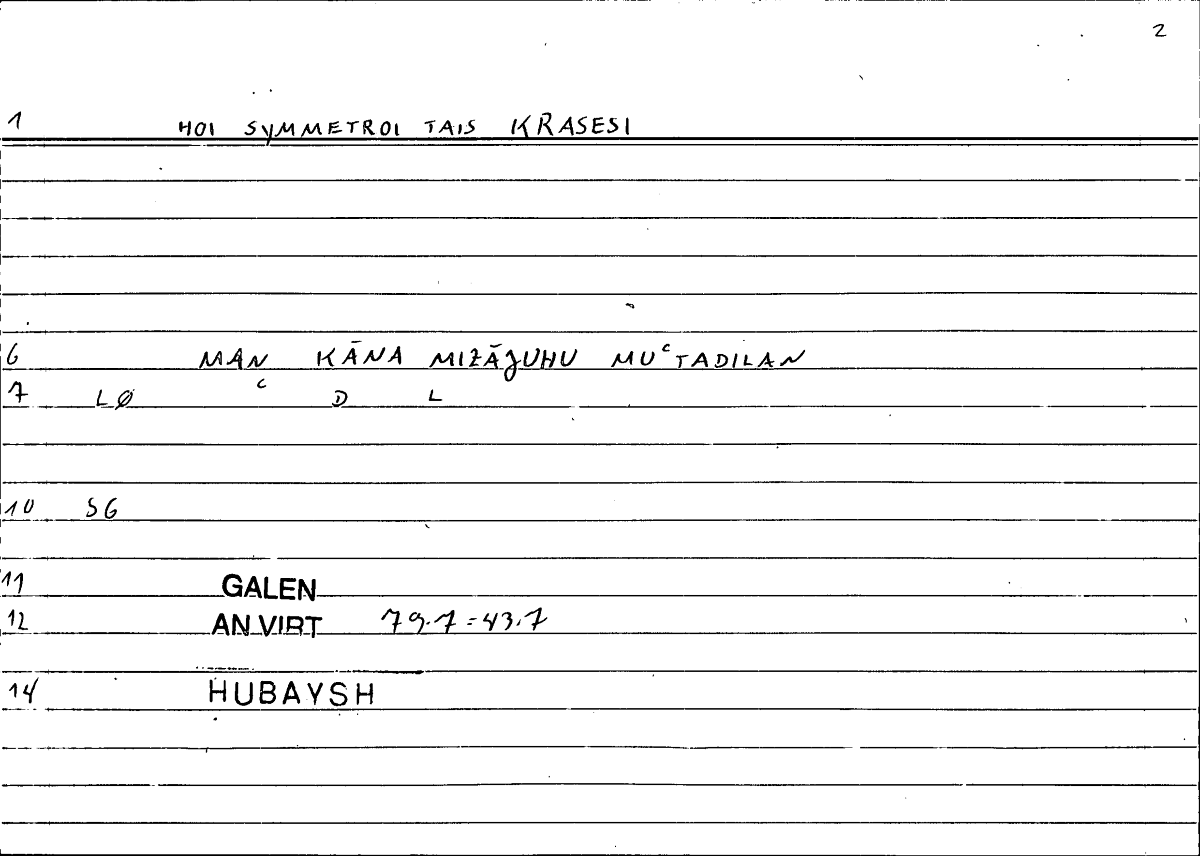 2
1 HOI SYMMETROI TAIS KRASESI
6 MAN KĀNA MIZĀǦUHU MUʿTADILAN
7 LØ ʿ D L
10 SG
11 GALEN
12 AN.VIRT 79.7=43.7
14 HUBAYSH